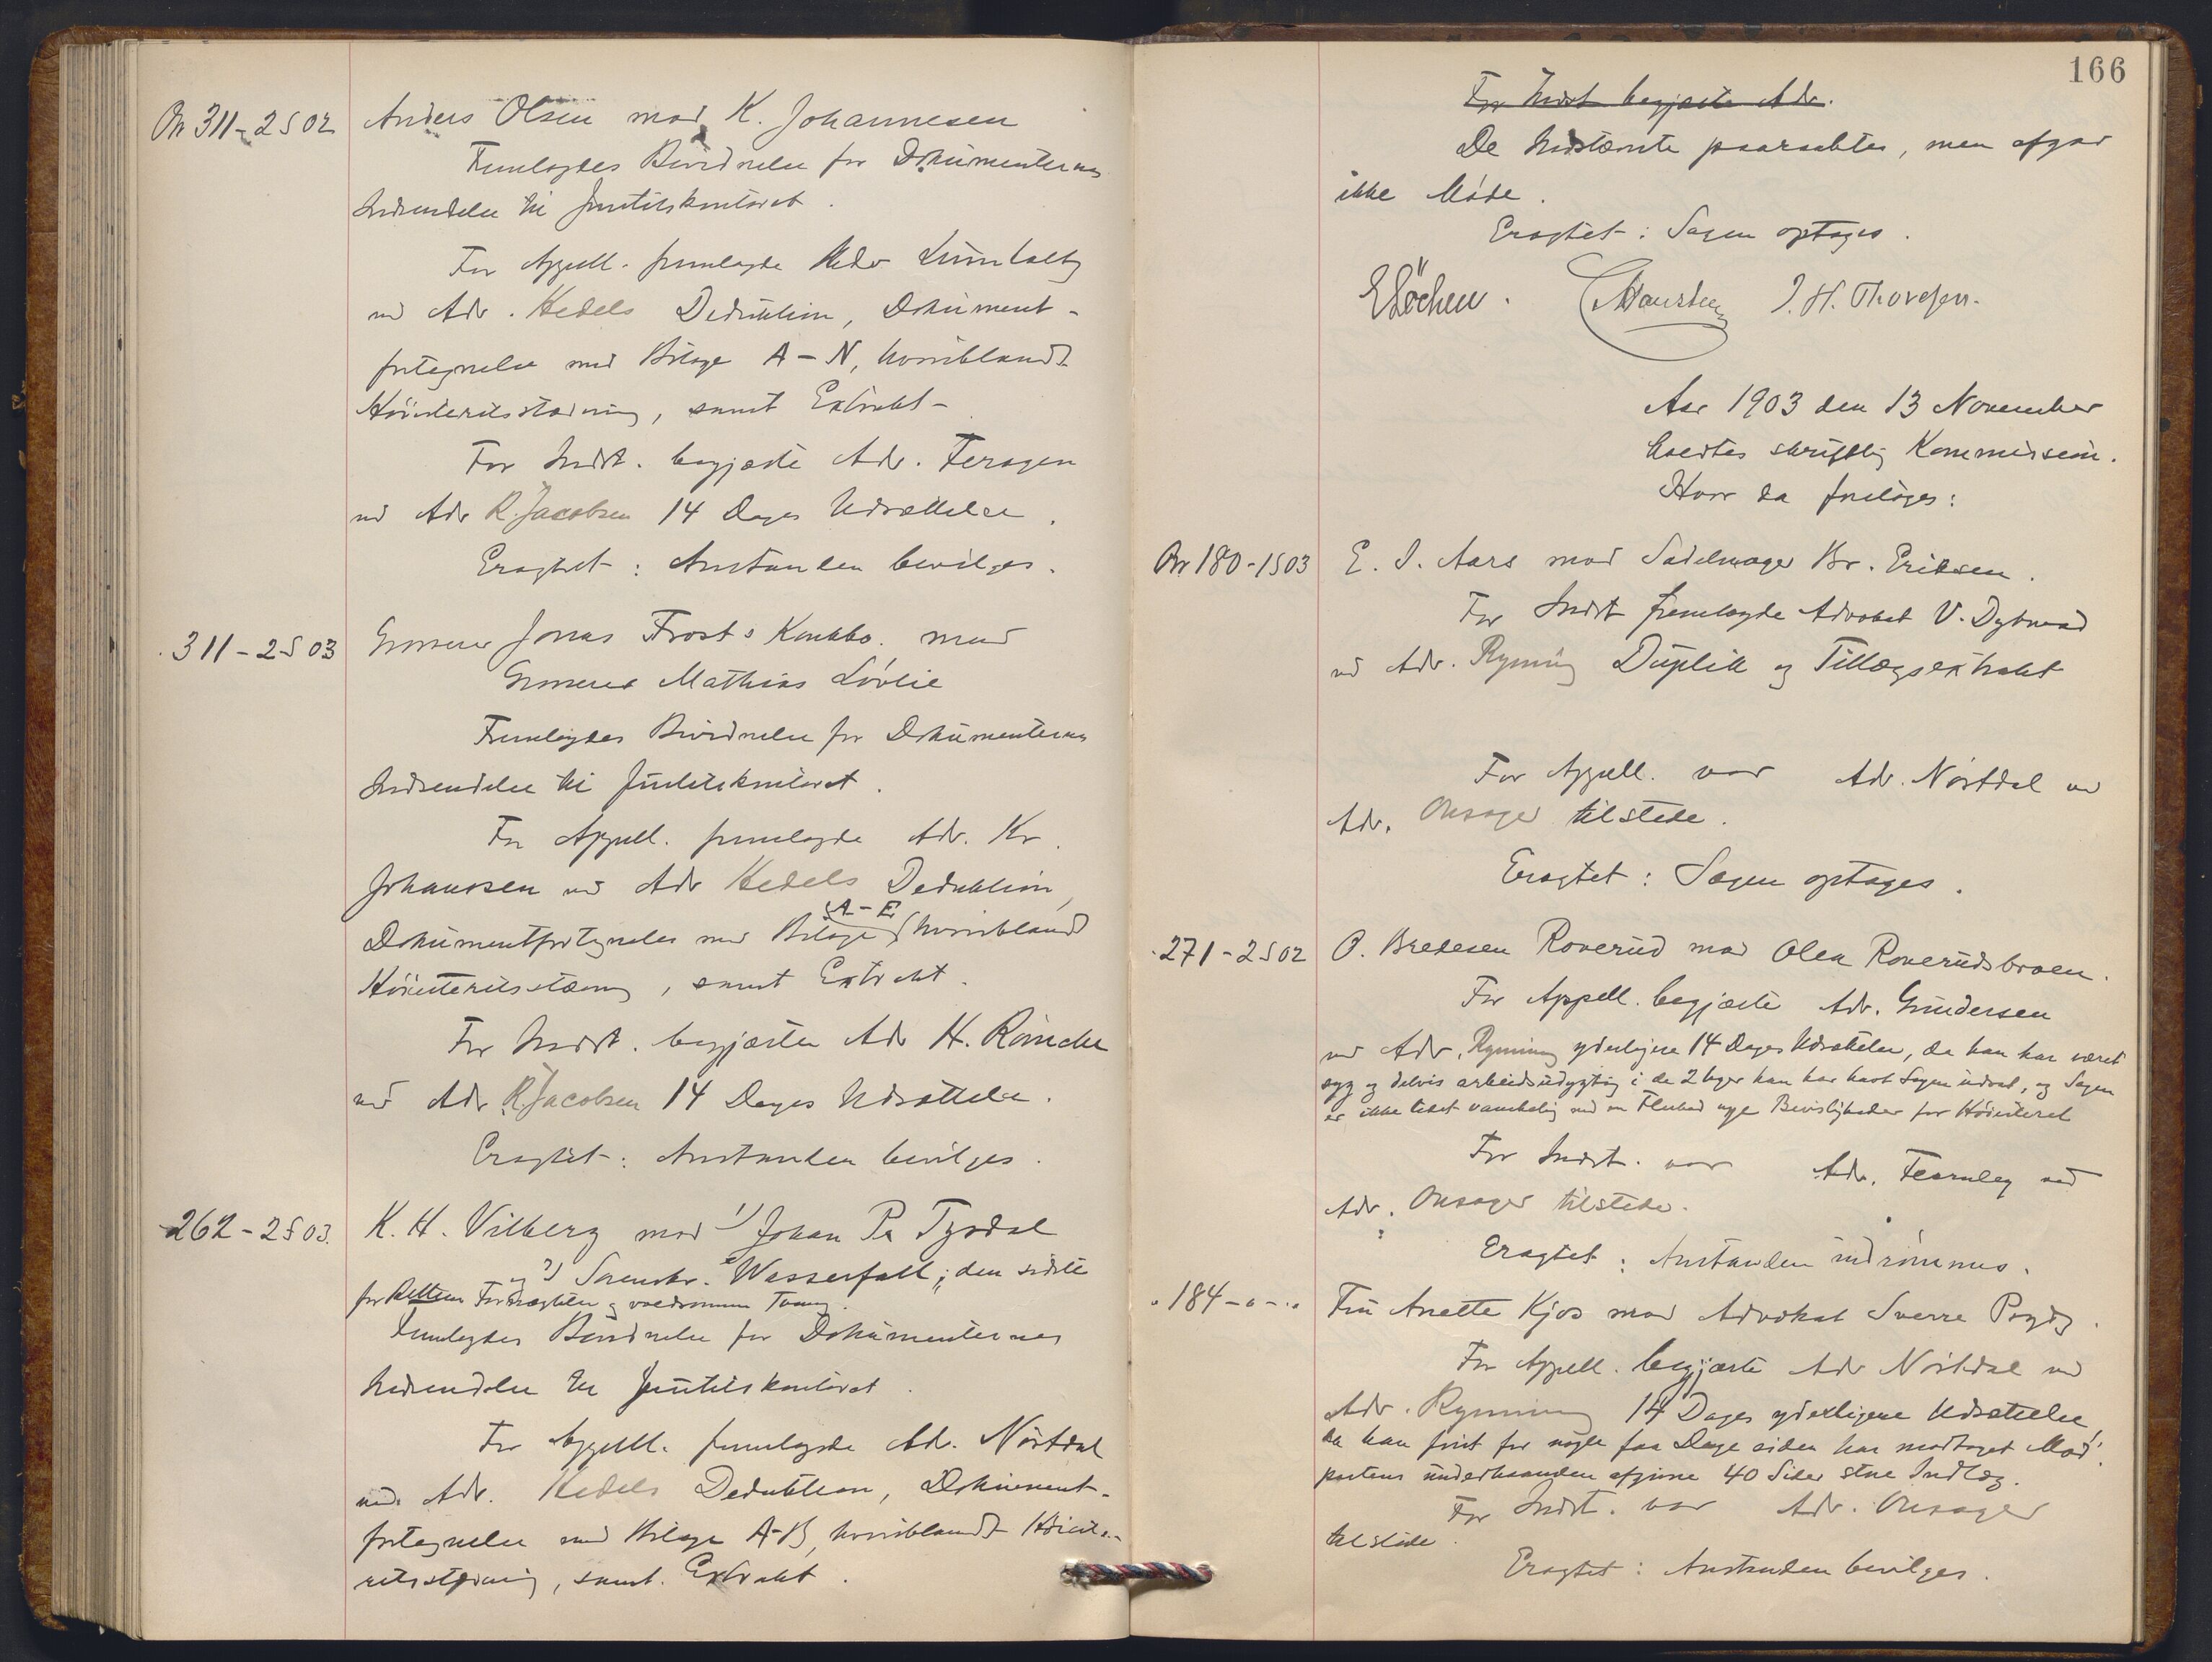 Nr 311 - 2 S 02
Anders Olsen mod K. Johannesen
Fremlagdes Bevidnelse for Dokumenternes
Indsendelse til Justitskontoret.
For Appell. fremlagde Adv
ved Adv. Hedels Deduktion, Dokument-
fortegnelse med Bilage A-N, hvoriblandt
Höiesteretsstævning, samt Extrakt-
For Indst. begjærte Adv. Feragen
ved Adv R. Jacobsen 14 Dages Udsættelse.
Eragtet: Anstanden bevilges.
311 - 2 S 03
Grosserer Jonas Frosts Konkbo. mod
Grosserer Mathias Lövlie
Fremlagdes Bevidnelse for Dokumenternes
Indsendelse til Justitskontoret.
For Appell. fremlagde Adv. Kr.
Johanssen ved Adv Hedels Deduktion,
A-E
Dokumentfortegnelse med Bilage hvoriblandt
Höiesteretsstævning, samt Extrakt.
For Indst. begjærte Adv H. Röincke
ved Adv. R. Jacobsen 14 Dages Udsættelse.
Eragtet: Anstanden bevilges.
262 - 2 S 03.
K. H. Vilberg mod 1) Johan Tysdal
og 2) Sorenskr. Wasserfall; den sidste
for Rettens og Tvang.
Fremlagdes Bevidnelse for Dokumenternes
Indsendelse til Justitskontoret.
For Appell. fremlagde Adv. Nörtdal
ved Adv. Hedels Deduktion, Dokument-
fortegnelse med Bilage A-B, hvoriblandt Höieste-
retsstævning, samt Extrakt.
166
For Indst begjærte Adv.
De Indstævnte paaraabtes, men afgav
ikke Möde.
Eragtet: Sagen optages.
E Löchen. J. H. Thoresen.
Aar 1903 den 13 November
holdtes skriftlig Kommission.
Hvor da foretoges:
Nr 180 - 1 S 03
E. S. Aars mod Sadelmager Br. Eriksen.
For Indst fremlagde Advokat V. Dybwad
ved Adv. Ryning Duplik og Tillægsextrakt
For Appell. var Adv. Nörtdal ved
Adv. Onsager tilstede.
Eragtet: Sagen optages.
271 - 2 S 02
O. Bredesen Roverud mod Olea Roverudsbroen.
For Appell. begjærte Adv. Gundersen
ved Adv. Ryning yderligere 14 Dages Udsættelse, da han har været
syg og delvis arbeidsudygtig i de 2 Uger han har havt Sagen udvat, og Sagen
er ikke lidet vanskelig med en Flerhed nye Bevisligheder for Höiesteret
For Indst. var Adv. Fearnley ved
Adv. Onsager tilstede.
Eragtet: Anstanden indrömmes.
184 - " - "
Fru Anette Kjos mod Advokat Sverre Prydz.
For Appell. begjærte Adv Nörtdal ved
Adv. Ryning 14 Dages yderligere Udsættelse,
da han först for nogle faa Dage siden har modtaget Mod-
partens underhaanden afgivne 40 Sider store Indlæg.
For Indst. var Adv. Onsager
tilstede.
Eragtet: Anstanden bevilges.